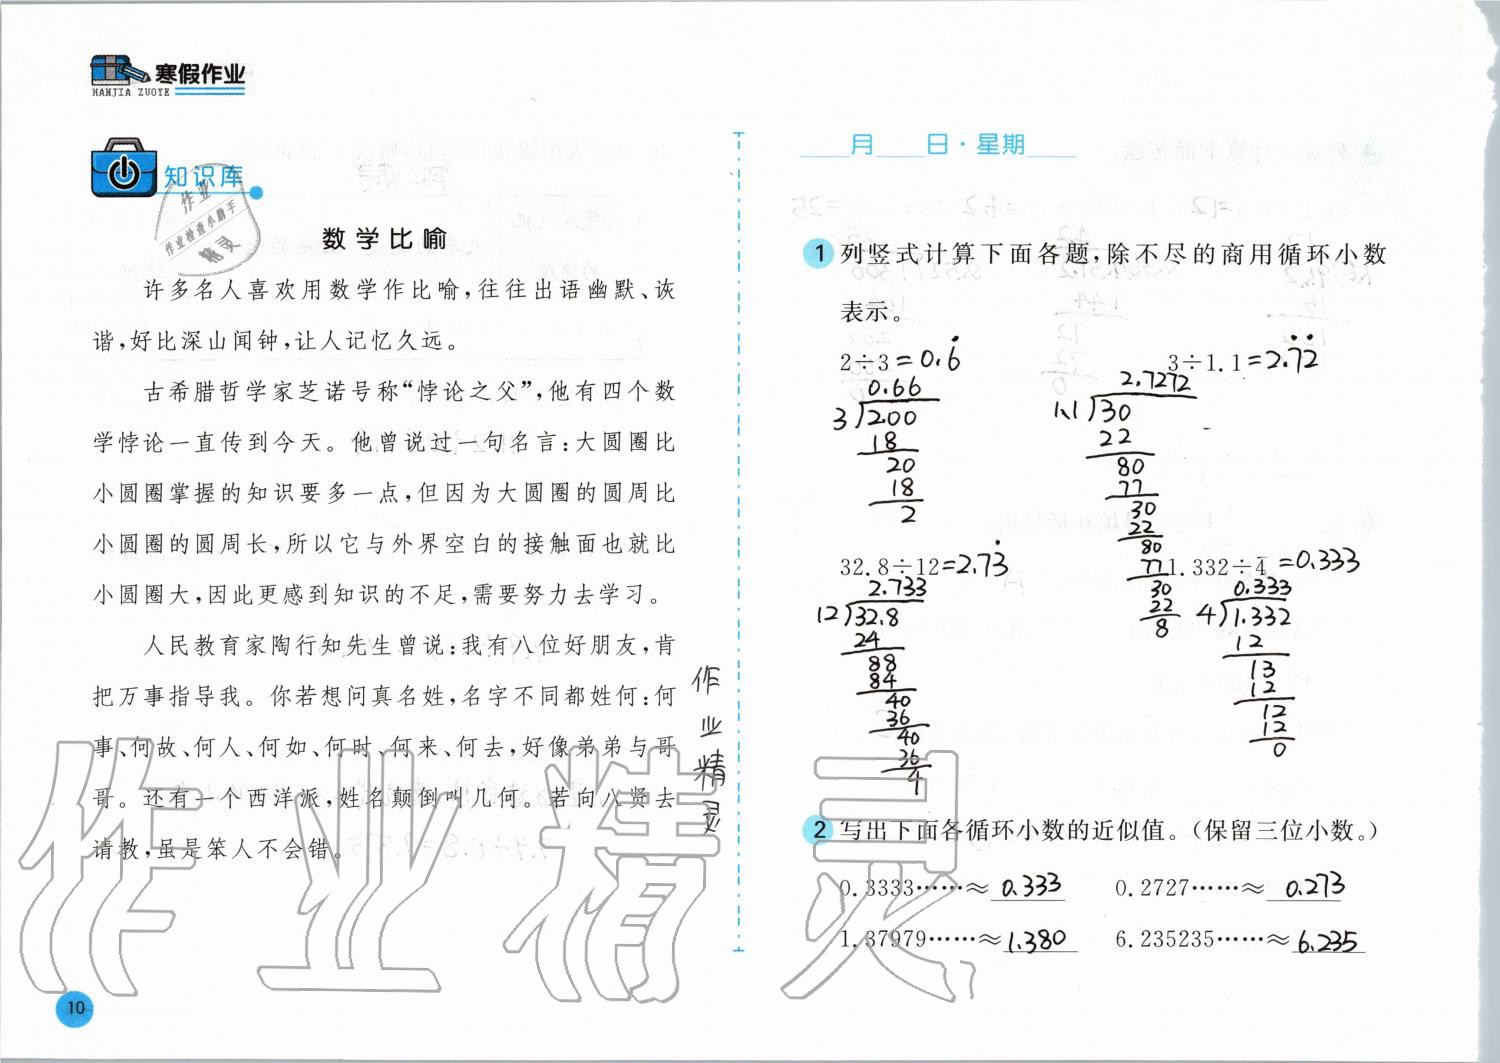 寒假作业
HANJIA ZUOYE
知识库
作业
作业检查小助手
精灵
数学比喻
许多名人喜欢用数学作比喻，往往出语幽默、诙
谐，好比深山闻钟，让人记忆久远。
古希腊哲学家芝诺号称“悖论之父”，他有四个数
学悖论一直传到今天。他曾说过一句名言：大圆圈比
小圆圈掌握的知识要多一点，但因为大圆圈的圆周比
小圆圈的圆周长，所以它与外界空白的接触面也就比
小圆圈大，因此更感到知识的不足，需要努力去学习。
人民教育家陶行知先生曾说：我有八位好朋友，肯
把万事指导我。你若想问真名姓，名字不同都姓何：何
事、何故、何人、何如、何时、何来、何去，好像弟弟与哥
哥。还有一个西洋派，姓名颠倒叫几何。若向八贤去
请教，虽是笨人不会错。
作业精灵
作业精灵
10
月 日·星期
1 列竖式计算下面各题，除不尽的商用循环小数
表示。
2÷3=0.6̇
0.66
3 2.00
18
20
18
2
3÷1.1=2.7̇2̇
2.7272
1.1 30
22
80
77
30
22
80
77
30
22
8
32.8÷12=2.73̇
2.733
12 32.8
24
88
84
40
36
40
36
4
1.332÷4=0.333
0.333
4 1.332
12
13
12
12
12
0
2 写出下面各循环小数的近似值。（保留三位小数。）
0.3333……≈ 0.333 0.2727……≈ 0.273
1.37979……≈ 1.380 6.235235……≈ 6.235